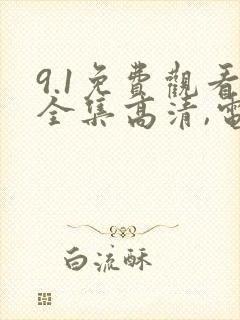 9.1免費觀看
全集高清,電
白流酥